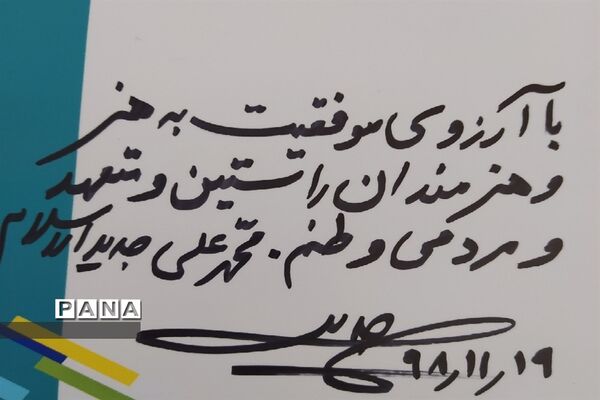 با آرزوی موفقیت به هنر
و هنرمندان راستین و متعهد
و مردمی وطنم. محمدعلی جدیدالاسلام
۹۸٫۱۱٫۱۹
PANA